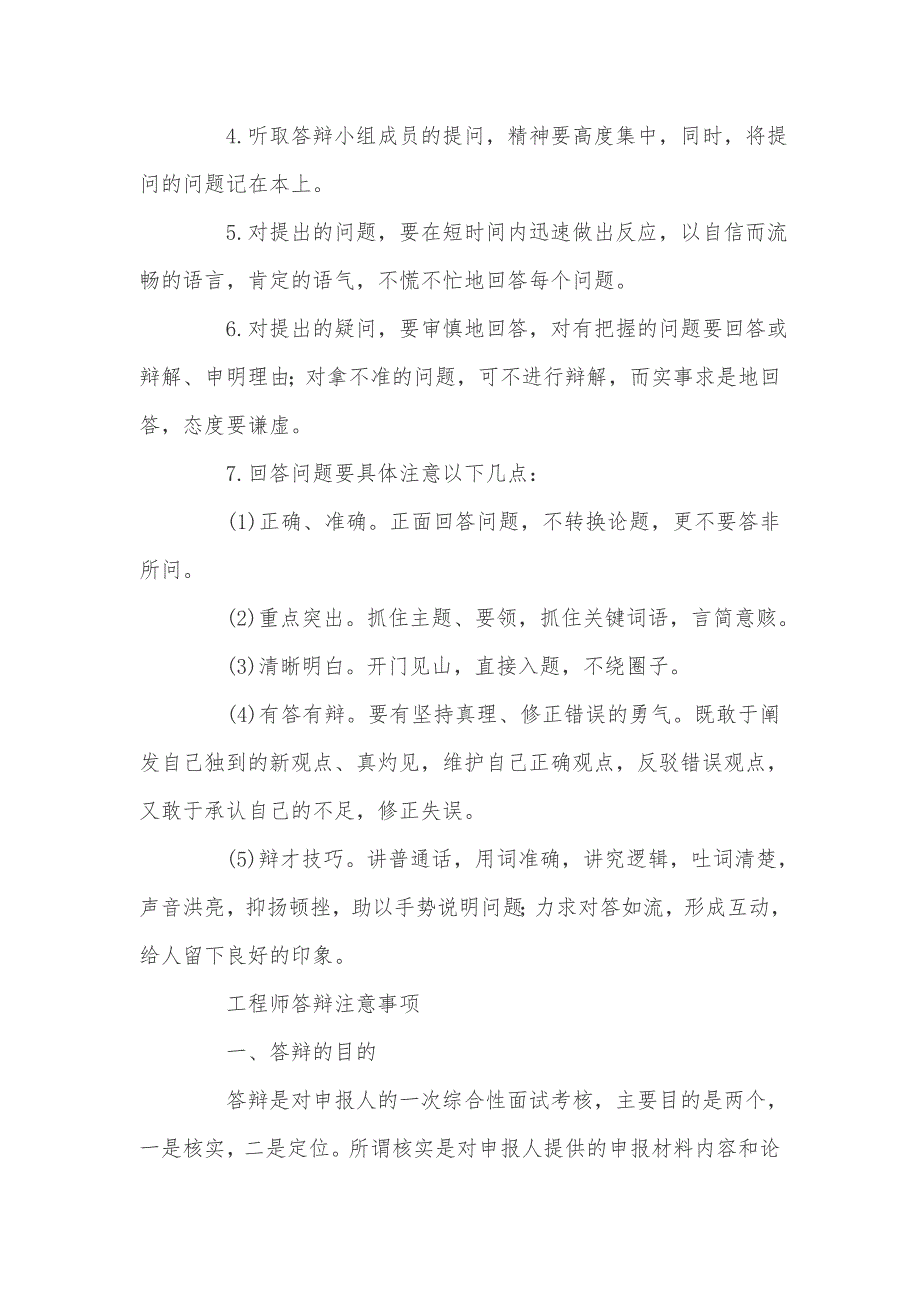 4.听取答辩小组成员的提问，精神要高度集中，同时，将提
问的问题记在本上。
5.对提出的问题，要在短时间内迅速做出反应，以自信而流
畅的语言，肯定的语气，不慌不忙地回答每个问题。
6.对提出的疑问，要审慎地回答，对有把握的问题要回答或
辩解、申明理由;对拿不准的问题，可不进行辩解，而实事求是地回
答，态度要谦虚。
7.回答问题要具体注意以下几点：
(1)正确、准确。正面回答问题，不转换论题，更不要答非
所问。
(2)重点突出。抓住主题、要领，抓住关键词语，言简意赅。
(3)清晰明白。开门见山，直接入题，不绕圈子。
(4)有答有辩。要有坚持真理、修正错误的勇气。既敢于阐
发自己独到的新观点、真灼见，维护自己正确观点，反驳错误观点，
又敢于承认自己的不足，修正失误。
(5)辩才技巧。讲普通话，用词准确，讲究逻辑，吐词清楚，
声音洪亮，抑扬顿挫，助以手势说明问题;力求对答如流，形成互动，
给人留下良好的印象。
工程师答辩注意事项
一、答辩的目的
答辩是对申报人的一次综合性面试考核，主要目的是两个，
一是核实，二是定位。所谓核实是对申报人提供的申报材料内容和论